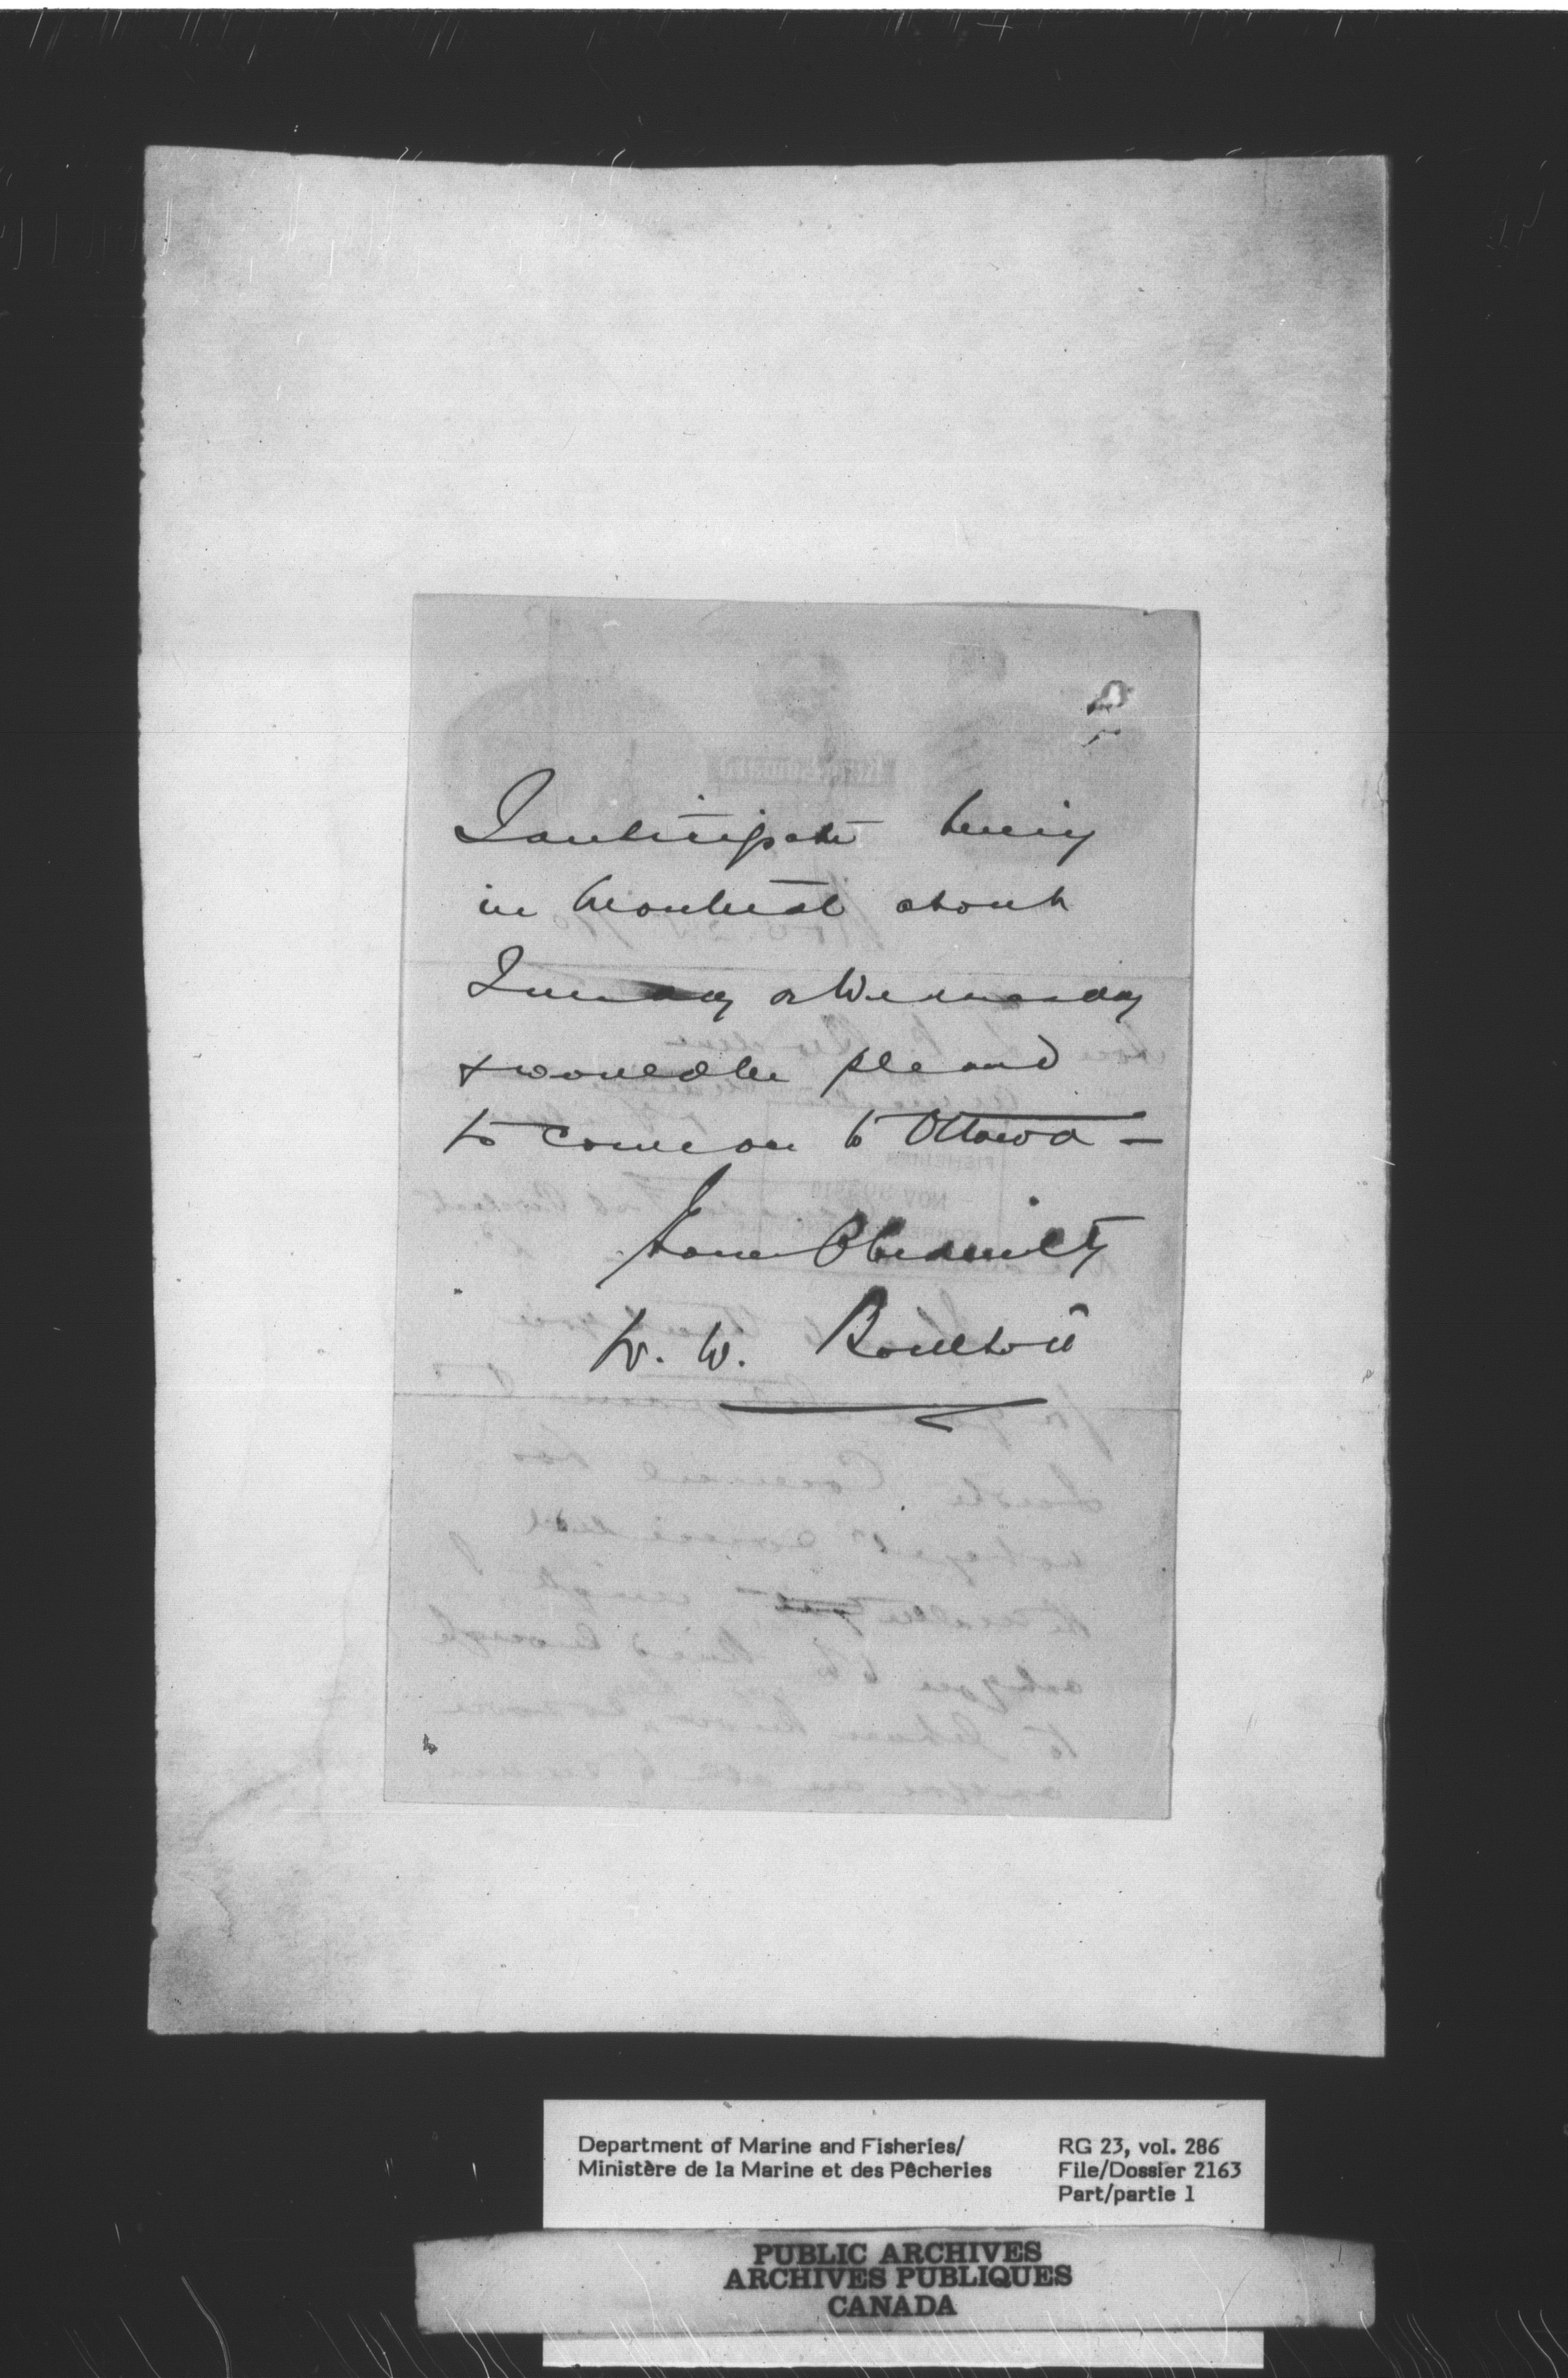 I anticipate being
in Montreal about
Tuesday or Wednesday
& would be pleased
to come on to Ottawa —
Yours Obediently
W. W. Boulton
Department of Marine and Fisheries/
Ministère de la Marine et des Pêcheries
RG 23, vol. 286
File/Dossier 2163
Part/partie 1
PUBLIC ARCHIVES
ARCHIVES PUBLIQUES
CANADA